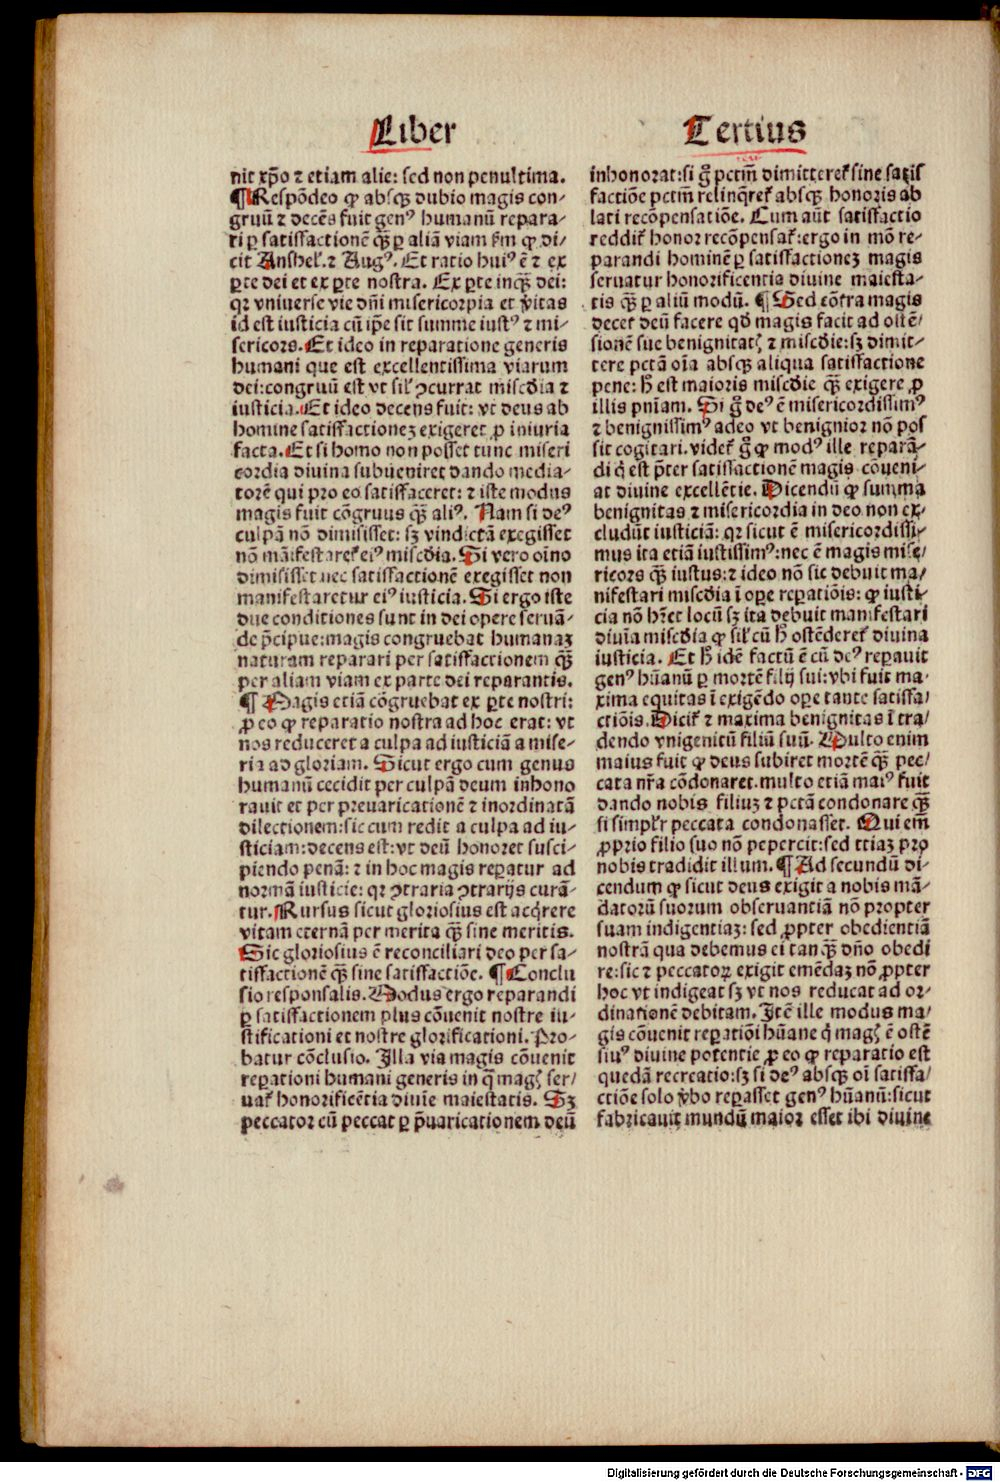 Liber Tertius
nit xp̄o ⁊ etiam alie: sed non penultima.
¶ Respōdeo ꝙ absqꝫ dubio magis con⸗
gruū ⁊ decēs fuit genꝰ humanū repara⸗
ri ꝑ satisfactionē qꝫ̄ ꝑ aliā viam fm̄ ꝙ di⸗
cit Anshel̄. ⁊ Augꝰ. Et ratio huiꝰ ē ⁊ ex
ꝑte dei et ex ꝑte nostra. Ex ꝑte inqꝫ̄ dei:
qꝛ vniverse vie dn̄i misericorpia et v̓itas
id est iusticia cū ip̄e sit summe iustꝰ ⁊ mi⸗
sericors. Et ideo in reparatione generis
humani que est excellentissima viarum
dei: congruū est vt sil̓ ꝯcurrat miscd̓ia ⁊
iusticia. Et ideo decens fuit: vt deus ab
homine satisfactionez exigeret ꝓ iniuria
facta. Et si homo non posset tunc miseri
cordia divina subueniret dando media⸗
torē qui pro eo satisfaceret: ⁊ iste modus
magis fuit cōgruus qꝫ̄ aliꝰ. Nam si deꝰ
culpā nō dimisisset: sꝫ vindictā exegisset
nō māifestaret̄ eiꝰ miscd̓ia. Si vero oīno
dimisisset nec satisfactionē exegisset non
manifestaretur eiꝰ iusticia. Si ergo iste
due conditiones sunt in dei opere seruā⸗
de p̄cipue: magis congruebat humanaꝫ
naturam reparari per satisfactionem qꝫ̄
per aliam viam ex parte dei reparantis.
¶ Magis etiā cōgruebat ex ꝑte nostri:
ꝓ eo ꝙ reparatio nostra ad hoc erat: vt
nos reduceret a culpa ad iusticiā a mise⸗
ria ad gloriam. Sicut ergo cum genus
humanū cecidit per culpā deum inhono
rauit et per preuaricationē ⁊ inordinatā
dilectionem: sic cum redit a culpa ad iu⸗
sticiam: decens est: vt deū honoret susci⸗
piendo penā: ⁊ in hoc magis reꝑatur ad
normā iusticie: qꝛ ꝯtraria ꝯtrarijs curā⸗
tur. Rursus sicut gloriosius est acq̓rere
vitam eternā per merita qꝫ̄ sine meritis.
Sic gloriosius ē reconciliari deo per sa⸗
tisfactionē qꝫ̄ sine satisfactiōe. ¶ Conclu
sio responsalis. Modus ergo reparandi
ꝑ satisfactionem plus cōuenit nostre iu⸗
stificationi et nostre glorificationi. Pro⸗
batur cōclusio. Illa via magis cōuenit
reꝑationi humani generis in q̄ magꝭ ser⸗
uat̄ honorificētia diuīe maiestatis. Sꝫ
peccator cū peccat ꝑ p̄uaricationem deū
inhonorat: si gͦ pctm̄ dimitteret̄ sine satis
factiōe pctm̄ relinq̓ret̄ absqꝫ honoris ab
lati recōpensatiōe. Cum aūt satisfactio
reddit̄ honor recōpensat̄: ergo in mō re⸗
parandi hominē ꝑ satisfactionez magis
seruatur honorificentia diuine maiesta⸗
tis qꝫ̄ ꝑ aliū modū. ¶ Sed cōtra magis
decet deū facere qd̓ magis facit ad ostē⸗
sionē sue benignitatꝭ ⁊ miscd̓ie: sꝫ dimit⸗
tere pctā oīa absqꝫ aliqua satisfactione
pene: hͦ est maioris miscd̓ie qꝫ̄ exigere ꝓ
illis pn̄iam. Si gͦ deꝰ ē misericordissimꝰ
⁊ benignissimꝰ adeo vt benignior nō pos
sit cogitari. videt̄ gͦ ꝙ modꝰ ille reparā⸗
di q̓ est p̄ter satisfactionē magis cōueni⸗
at diuine excellētie. Dicendū ꝙ summa
benignitas ⁊ misericordia in deo non ex⸗
cludūt iusticiā: qꝛ sicut ē misericordissi⸗
mus ita etiā iustissimꝰ: nec ē magis mise⸗
ricors qꝫ̄ iustus: ⁊ ideo nō sic debuit ma⸗
nifestari miscd̓ia ī oꝑe reꝑatiōis: ꝙ iusti⸗
cia nō hr̄et locū sꝫ ita debuit manifestari
diuīa miscd̓ia ꝙ sil̓ cū hͦ ostēderet̄ diuina
iusticia. Et hͦ idē factū ē cū deꝰ reꝑauit
genꝰ hūanū ꝑ mortē filij sui: vbi fuit ma⸗
xima equitas ī exigēdo oꝑe tante satisfa⸗
ctiōis. Dicit̄ ⁊ maxima benignitas ī tra⸗
dendo vnigenitū filiū suū. Multo enim
maius fuit ꝙ deus subiret mortē qꝫ̄ pec⸗
cata nr̄a cōdonaret. multo etiā maiꝰ fuit
dando nobis filiuz ⁊ pctā condonare qꝫ̄
si simpl̓r peccata condonasset. Qui em̄
ꝓprio filio suo nō pepercit: sed ⁊tiaz pro
nobis tradidit illum. ¶ Ad secundū di⸗
cendum ꝙ sicut deus exigit a nobis mā⸗
datorū suorum obseruantiā nō propter
suam indigentiaz: sed ꝓpter obedientiā
nostrā qua debemus ei tanqꝫ̄ dn̄o obedi
re: sic ⁊ peccatoꝝ exigit emēdaz nō ꝓpter
hoc vt indigeat sꝫ vt nos reducat ad or⸗
dinationē debitam. Itē ille modus ma⸗
gis cōuenit reꝑatiōi hūane q̓ magꝭ ē ostē
siuꝰ diuine potentie ꝓ eo ꝙ reparatio est
quedā recreatio: sꝫ si deꝰ absqꝫ oī satisfa⸗
ctiōe solo v̓bo reꝑasset genꝰ hūanū: sicut
fabricauit mundū maior esset ibi diuine
Digitalisierung gefördert durch die Deutsche Forschungsgemeinschaft - DFG